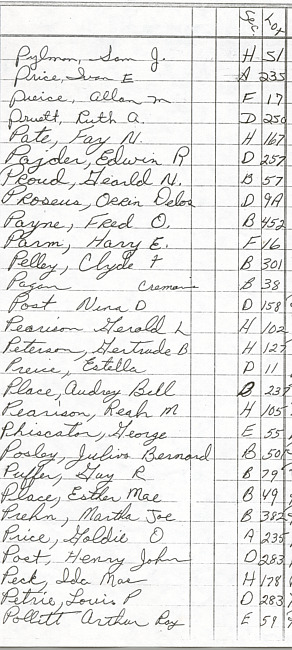 Sec. Lot
Pylman, Sam J. H 51
Price, Ivan E A 235
Pierce, Allan M F 17
Pruett, Ruth A. D 250
Pate, Fay N. H 167
Pajder, Edwin R D 257
Proud, Gearld N. B 57
Proseus, Orrin Delos D 9A
Payne, Fred O. B 452
Parm, Harry E. F 16
Pelley, Clyde F B 301
Pagan Cremains B 38
Post Nina D D 158
Pearison Gerold L H 102
Peterson, Gertrude B H 127
Preise, Estella D 11
Place, Audrey Bell B 237
Pearison, Reah M H 105
Phiscator, George E 55
Posley, Julius Bernard B 50
Puffer, Guy R B 79
Place, Esther Mae B 49
Prehn, Martha Joe B 382
Price, Goldie O A 235
Post, Henry John D 283
Peck, Ida Mae H 178
Petrie, Louis P D 283
Pollitt Arthur Ray E 59